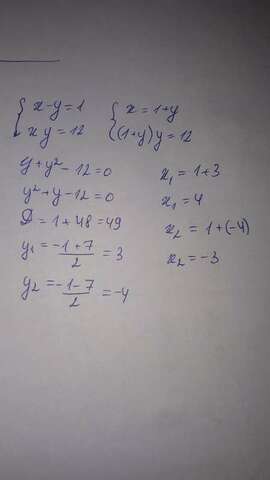 { x-y=1
xy=12
{ x=1+y
(1+y)y=12
y+y²-12=0
y²+y-12=0
D=1+48=49
y₁=(-1+7)/2=3
y₂=(-1-7)/2=-4
x₁=1+3
x₁=4
x₂=1+(-4)
x₂=-3